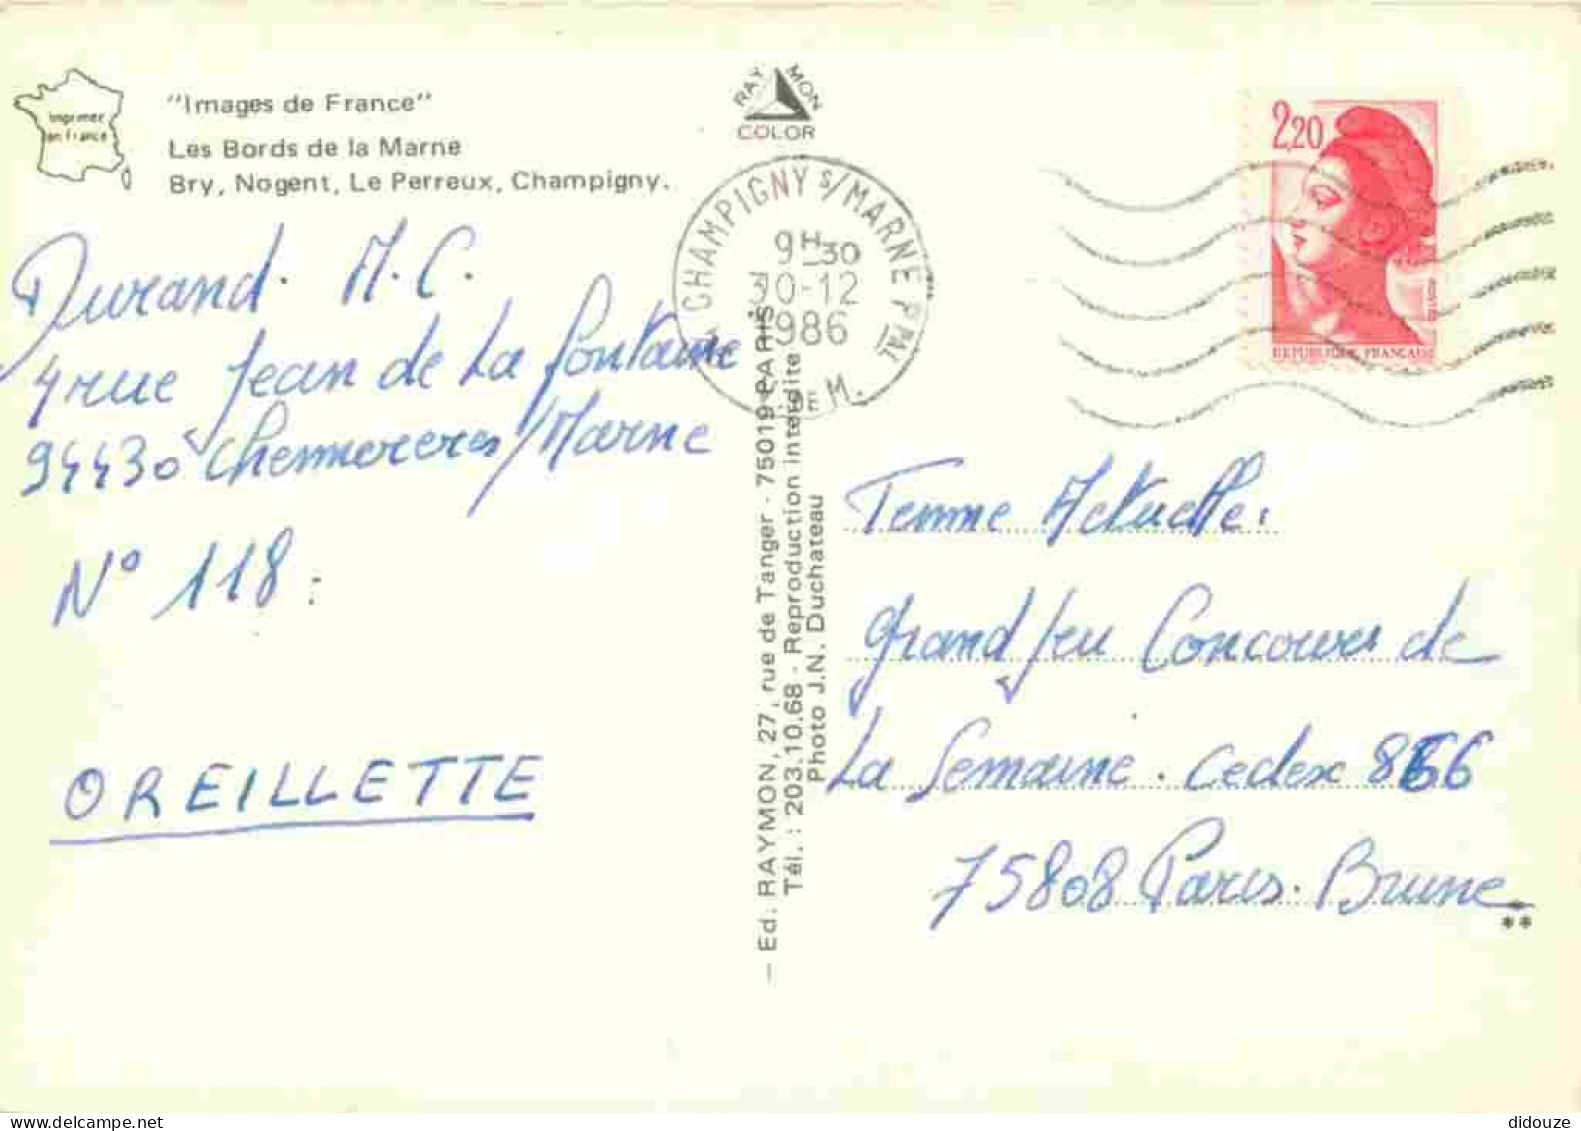 Imprimer
en France
"Images de France"
Les Bords de la Marne
Bry, Nogent, Le Perreux, Champigny.
RAYMON
COLOR
CHAMPIGNY S/MARNE PPAL
9H30
10-12
1986
DE M.
2,20
REPUBLIQUE FRANÇAISE
Durand. M.C.
4 rue Jean de La Fontaine
94430 Chennevieres/Marne
N° 118 :
OREILLETTE
— Ed. RAYMON, 27, rue de Tanger - 75019 PARIS
Tél. : 203.10.68 - Reproduction interdite
Photo J.N. Duchateau
Femme Actuelle:
grand Jeu Concours de
La Semaine. Cedex 866
75808 Paris. Brune
**
didouze